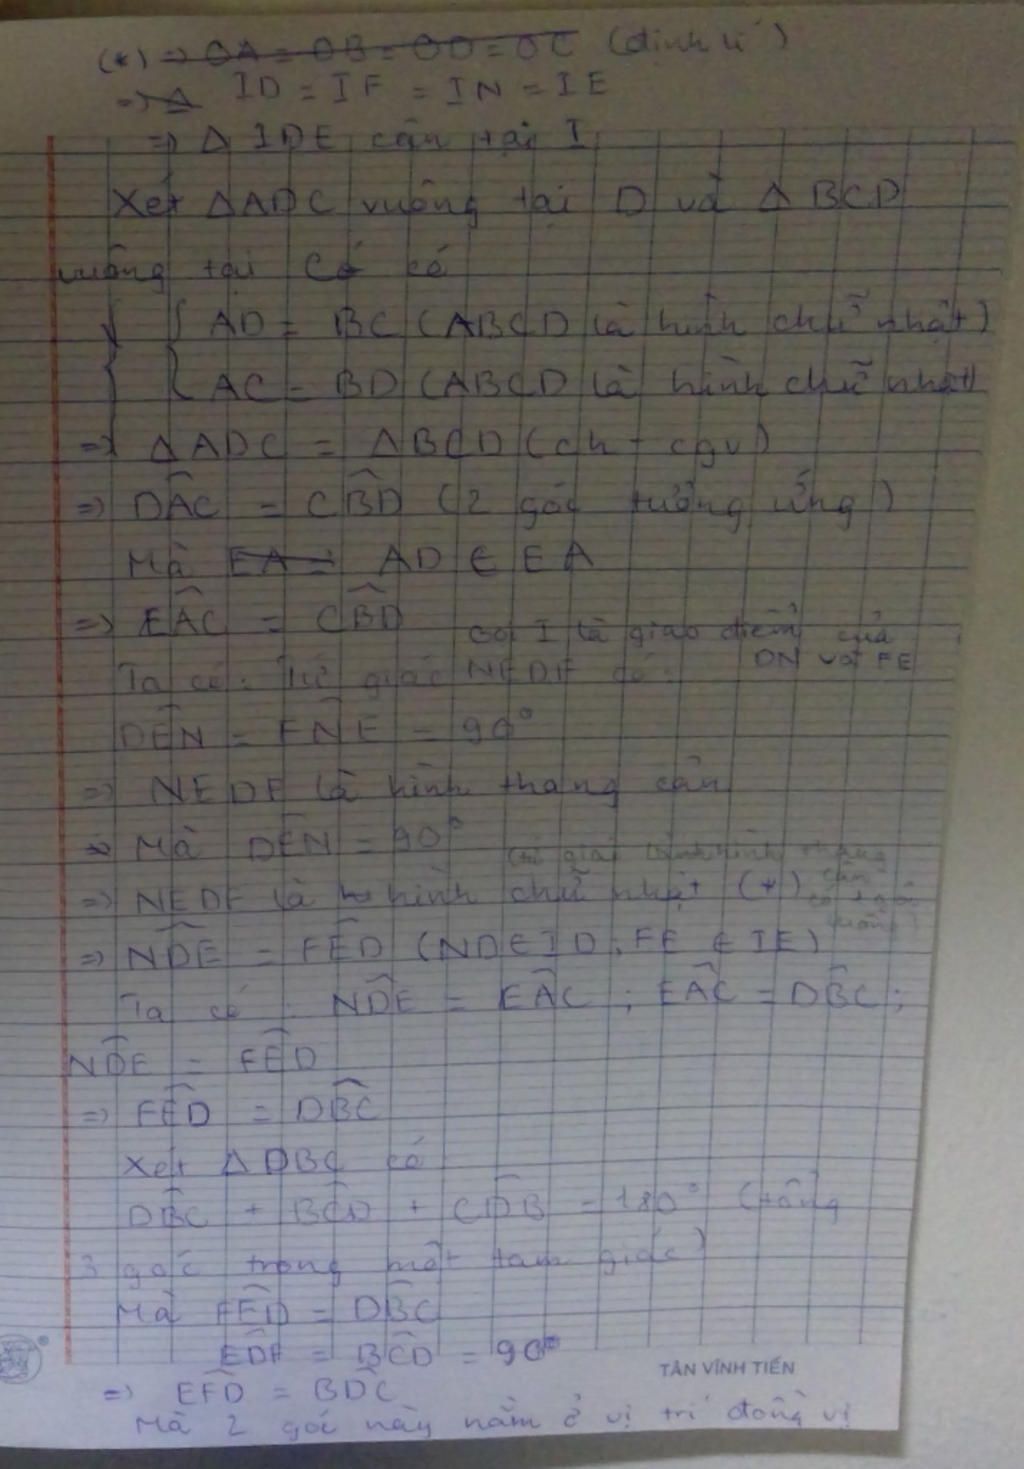 (*) => OA = OB = OD = OC (định lí)
=> Δ ID = IF = IN = IE
=> Δ IDE cân tại I
Xét ΔADC vuông tại D và Δ BCD
vuông tại C có
AD = BC (ABCD là hình chữ nhật)
AC = BD (ABCD là hình chữ nhật)
=> ΔADC = ΔBCD (ch - cgv)
=> DAC = CBD (2 góc tương ứng)
Mà EA = AD ∈ EA
=> EAC = CBD
Gọi I là giao điểm của
DN và FE
Ta có: Tứ giác NEDF có:
DEN = FNE = 90°
=> NEDF là hình thang cân
=> Mà DEN = 90°
=> NEDF là hình chữ nhật (*)
=> NDE = FED (ND ∈ ID, FE ∈ IE)
Ta có: NDE = EAC; EAC = DBC;
NDE = FED
=> FED = DBC
Xét Δ DBC có
DBC + BCD + CDB = 180° (tổng
3 góc trong một tam giác)
Mà FED = DBC
EDF = BCD = 90°
TÂN VĨNH TIẾN
=> EFD = BDC
Mà 2 góc này nằm ở vị trí đồng vị